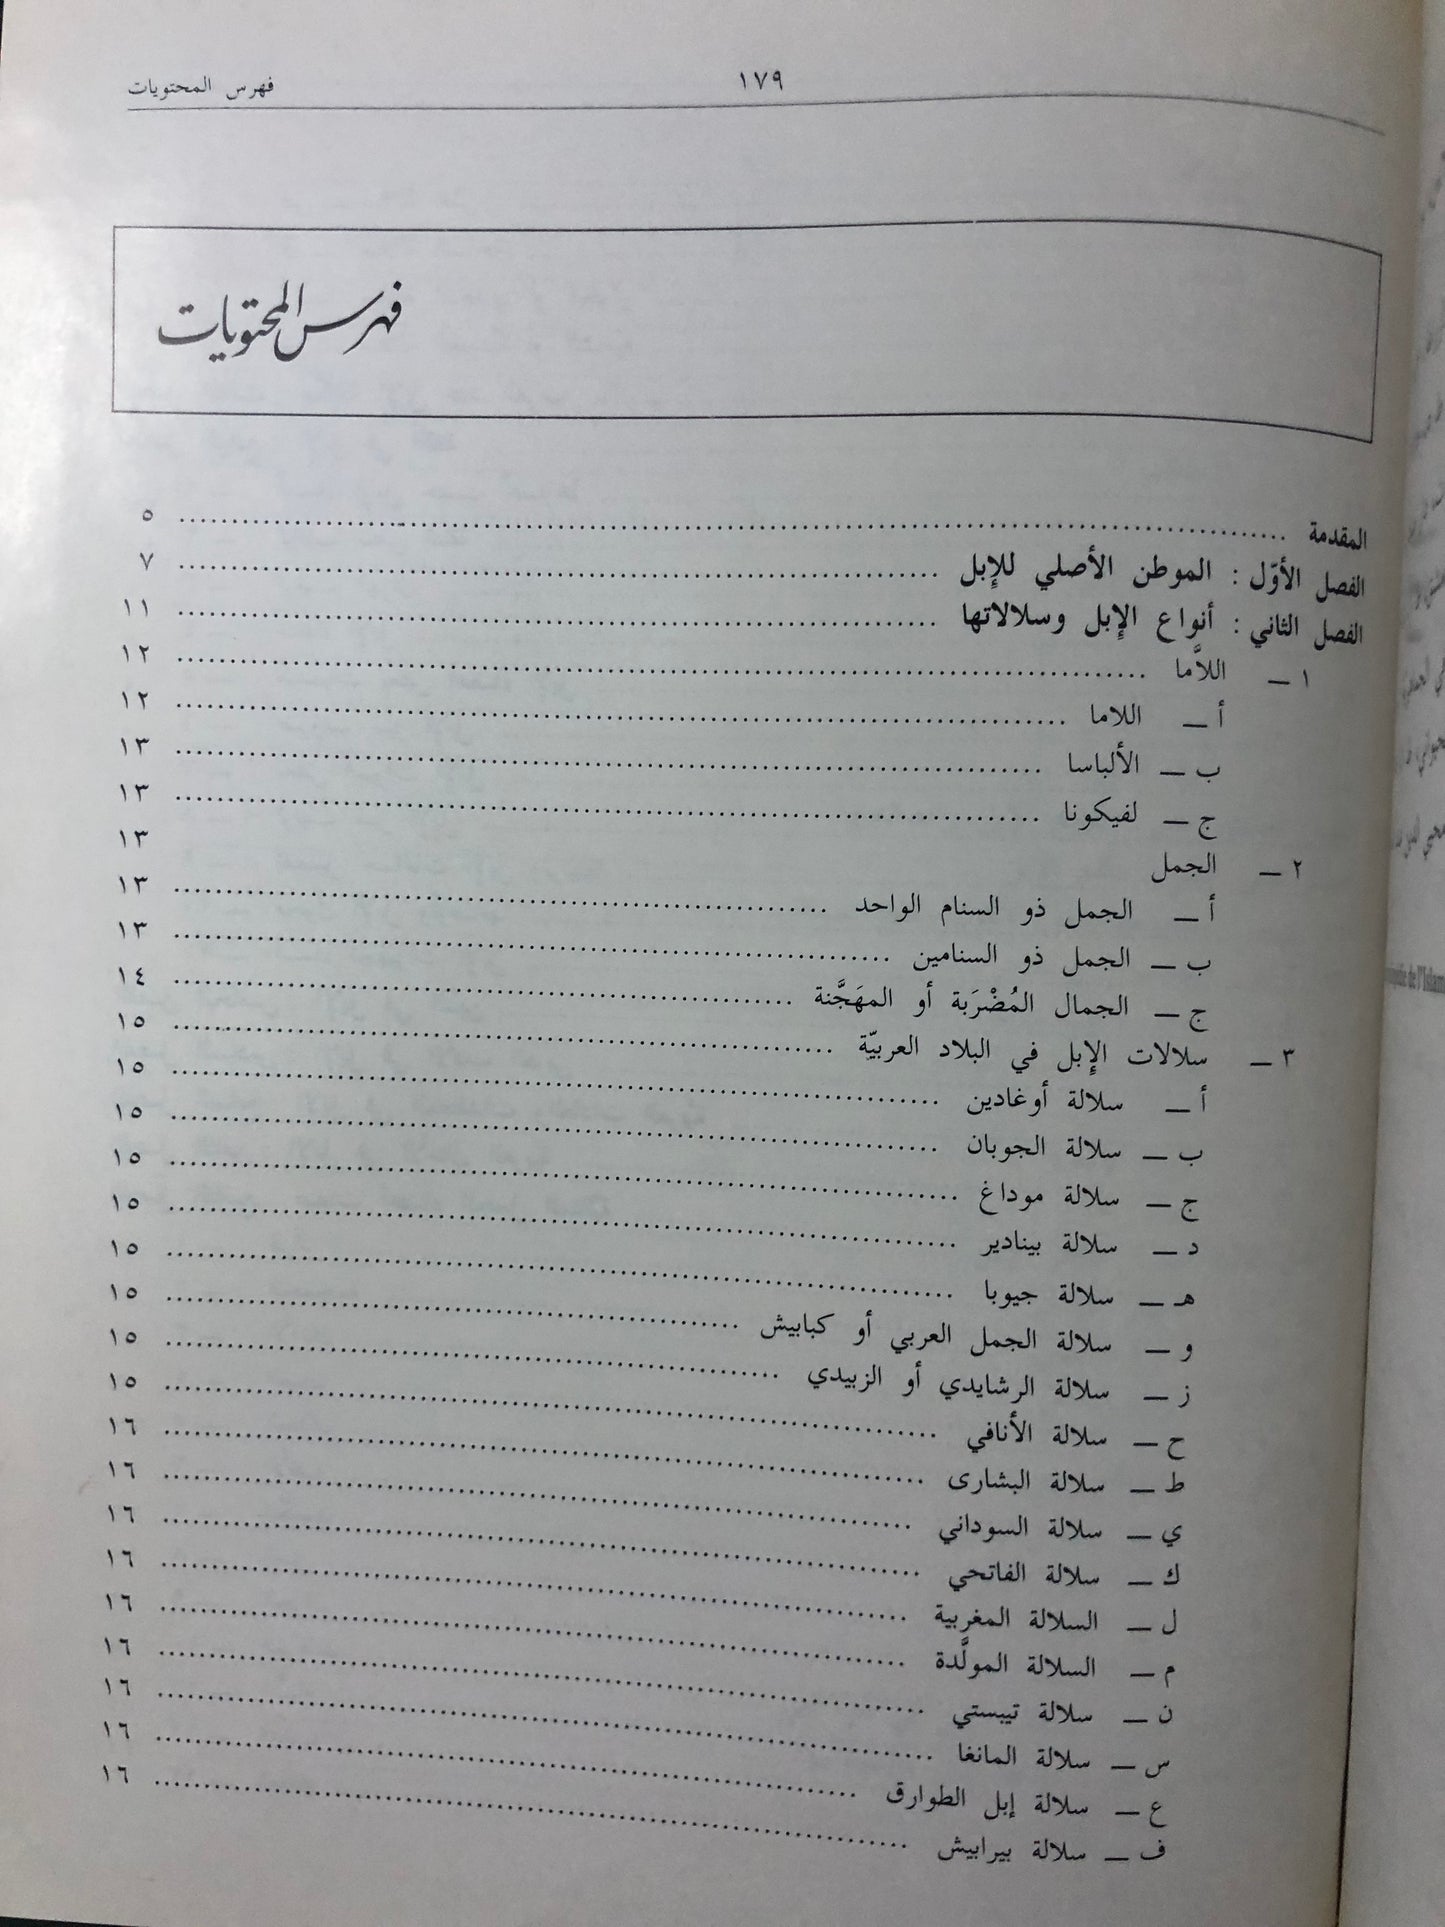 فهرس المحتويات ١٧٩
فهرس المحتويات
المقدمة ........ ٥
الفصل الأوّل : الموطن الأصلي للإبل ........ ٧
الفصل الثاني : أنواع الإبل وسلالاتها ........ ١١
١ ـ اللاَّما ........ ١٢
أ ـ اللاما ........ ١٢
ب ـ الألباسا ........ ١٣
ج ـ لفيكونا ........ ١٣
٢ ـ الجمل ١٣
أ ـ الجمل ذو السنام الواحد ........ ١٣
ب ـ الجمل ذو السنامين ........ ١٣
ج ـ الجمال المُضْرَبة أو المهَجَّنة ........ ١٤
٣ ـ سلالات الإبل في البلاد العربيّة ........ ١٥
أ ـ سلالة أوغادين ........ ١٥
ب ـ سلالة الجوبان ........ ١٥
ج ـ سلالة موداغ ........ ١٥
د ـ سلالة بينادير ........ ١٥
هـ ـ سلالة جيوبا ........ ١٥
و ـ سلالة الجمل العربي أو كبابيش ........ ١٥
ز ـ سلالة الرشايدي أو الزبيدي ........ ١٥
ح ـ سلالة الأنافي ........ ١٥
ط ـ سلالة البشارى ........ ١٦
ي ـ سلالة السوداني ........ ١٦
ك ـ سلالة الفاتحي ........ ١٦
ل ـ السلالة المغربية ........ ١٦
م ـ السلالة المولَّدة ........ ١٦
ن ـ سلالة تيبستي ........ ١٦
س ـ سلالة المانغا ........ ١٦
ع ـ سلالة إبل الطوارق ........ ١٦
ف ـ سلالة بيرابيش ........ ١٦
de l'Islam